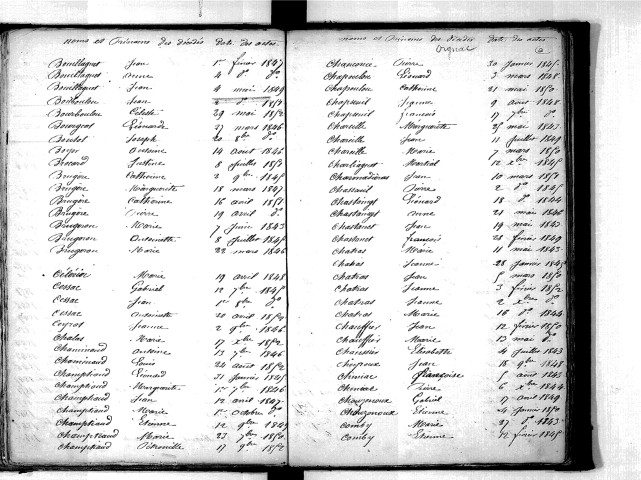 noms et Prénoms des décédés date des actes.
Bouillaguet Jean 1er février 1847
Bouillaguet Anne 4 do do
Bouillaguet Jean 4 mai 1849
Jean 2 do 1851
Bourboulou Celeste 29 mai 1852
Bourgeot Léonarde 27 mars 1846
Boutot Joseph 20 8bre do
Boyer Antoine 14 août 1846
Brossard Justine 8 juillet 1853
Brugère Catherine 2 9bre 1845
Brugère Marguerite 18 mars 1847
Brugère Catherine 16 avril 1851
Brugère Pierre 19 avril do
Brugeron Marie 7 juin 1843
Brugeron Antoinette 8 juillet 1845
Brugeron Marie 22 mars 1846
Célérier Marie 19 avril 1848
Cessac Gabriel 12 7bre 1845
Cessac Jean 1er 8bre do
Cessac Antoinette 20 avril 1852
Ceyrat Jeanne 2 9bre 1846
Chalos Marie 17 Xbre 1852
Chaminaud Antoine 13 7bre 1846
Chaminaud Louis 24 août 1852
Champtiaud Léonard 31 janvier 1845
Champtiaud Marguerite 1er 7bre 1846
Champtiaud Jean 12 avril 1847
Champtiaud Marie 1er octobre do
Champtiaud Etienne 12 9bre 1849
Champtiaud Marie 23 7bre 1850
Champtiaud Pétronille 17 9bre 1852
noms et Prénoms des décédés date des actes
Orgnac
Chancence Pierre 20 janvier 1845
Chapoulou Léonard 3 mars 1848
Chapoulou Catherine 21 mai 1850
Chapseuil Jeanne 9 août 1848
Chapseuil François 17 7bre do
Chareille Marguerite 25 mai 1847
Chareille Jean 11 juillet 1849
Chareille Marie 7 mars 1850
Charliaguet Martial 12 Xbre 1845
Jean 10 mars 1851
Chasseuil Pierre 2 do 1845
Chastaingt Léonard 18 do 1844
Chastaingt Anne 21 mai 1846
Chastanet Jean 19 mai 1843
Chastanet François 24 février 1849
Chatras Marie 11 mai 1843
Chatras Jeanne 28 janvier 1845
Chatras Jean 5 mars 1850
Chatras Jeanne 3 février 1852
Chatras Jeanne 2 Xbre do
Chatras Marie 16 do 1844
Chauffier Jean 12 février 1850
Chauffier Marie 13 mai do
Chaussier Elisabette 4 juillet 1843
Jean 18 9bre 1848
Chiniac Françoise 1er août 1843
Chiniac Pierre 6 Xbre 1844
Chouzenoux Gabriel 17 avril 1849
Chouzenoux Etienne 4 janvier 1850
Comby Marie 27 do 1843
Comby Etienne 12 février 1845